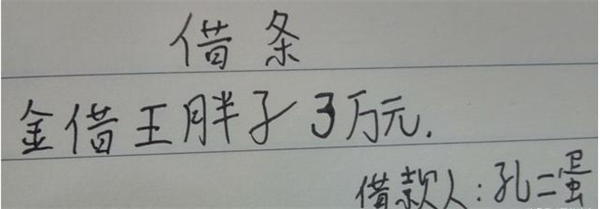 借条
金借王胖子3万元.
借款人:孔二蛋